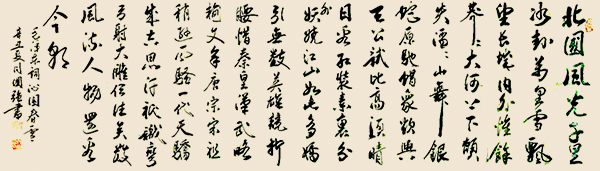 北國風光千里
冰封萬里雪飄
望長城內外惟餘
莽々大河上下頓
失滔々山舞銀
蛇原馳蠟象欲與
天公試比高須晴
日看紅裝素裹分
外妖嬈江山如此多嬌
引無數英雄競折
腰惜秦皇漢武略
輸文采唐宗宋祖
稍遜風騷一代天驕
成吉思汗祇識彎
弓射大雕俱往矣數
風流人物還看
今朝
毛澤東詞沁園春雪
辛丑夏國強書